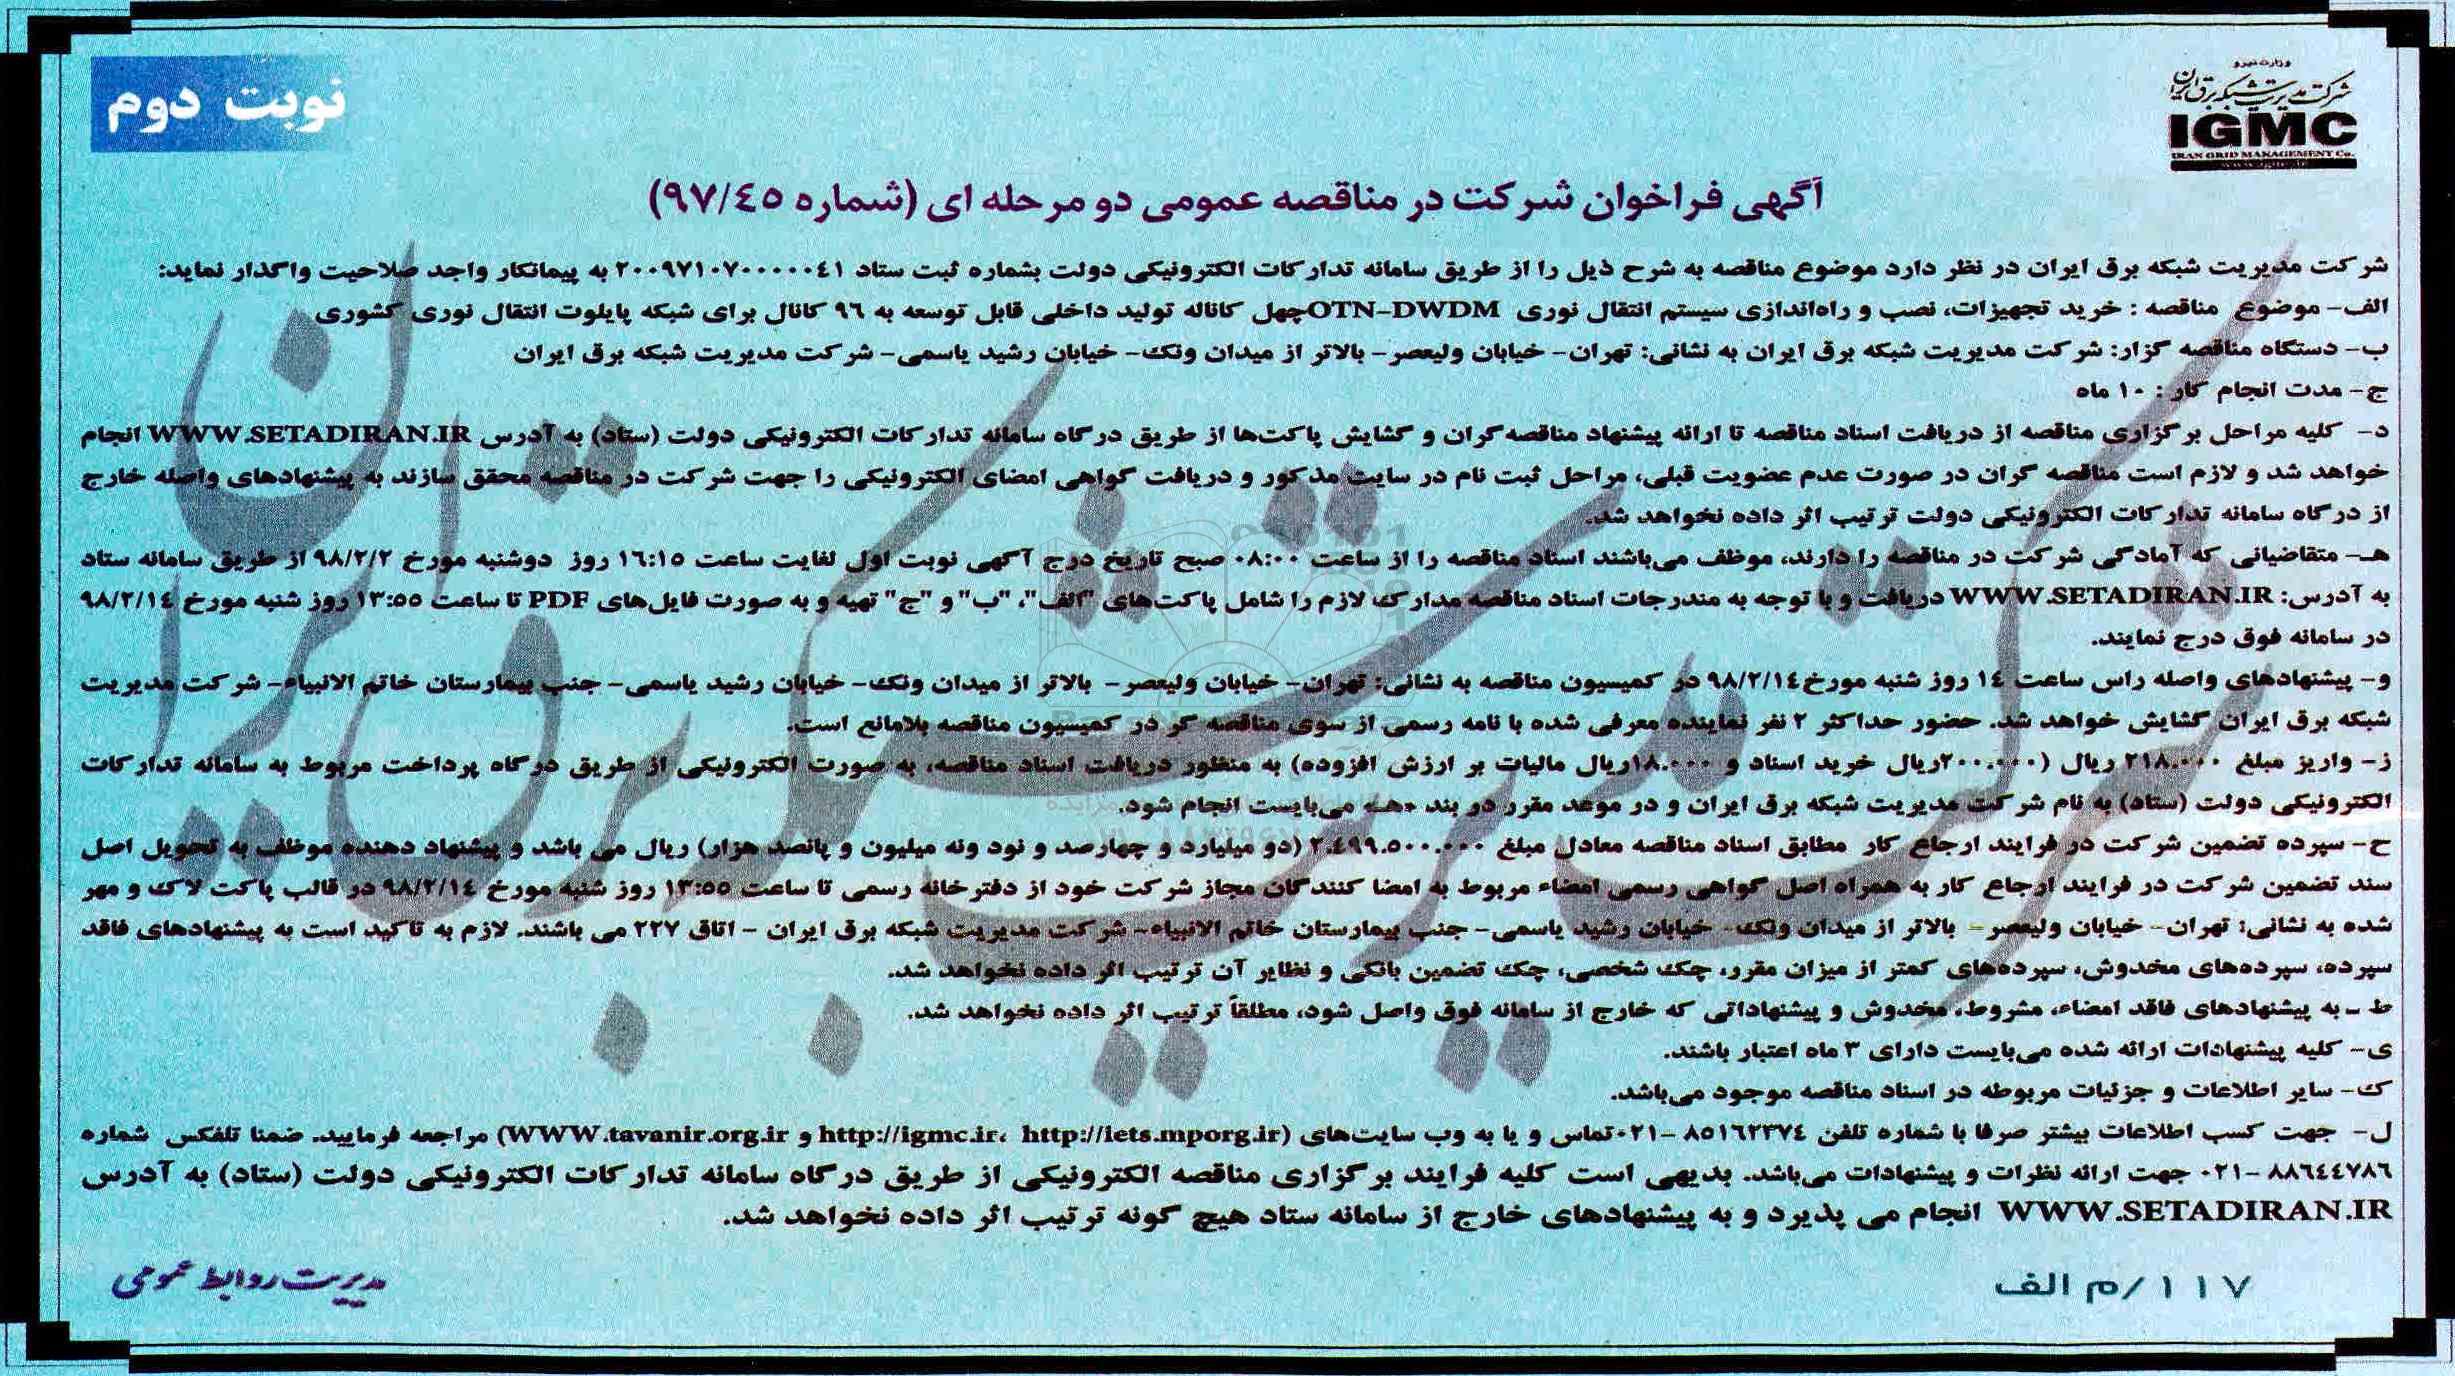 وزارت نیرو
شرکت مدیریت شبکه برق ایران
IGMC
IRAN GRID MANAGEMENT Co.
نوبت دوم
آگهی فراخوان شرکت در مناقصه عمومی دو مرحله ای (شماره ۹۷/٤٥)
شرکت مدیریت شبکه برق ایران در نظر دارد موضوع مناقصه به شرح ذیل را از طریق سامانه تدارکات الکترونیکی دولت بشماره ثبت ستاد ۲۰۰۹۷۱۰۷۰۰۰۰۰۰٤۱ به پیمانکار واجد صلاحیت واگذار نماید:
الف- موضوع مناقصه : خرید تجهیزات، نصب و راه‌اندازی سیستم انتقال نوری OTN-DWDMچهل کاناله تولید داخلی قابل توسعه به ۹٦ کانال برای شبکه پایلوت انتقال نوری کشوری
ب- دستگاه مناقصه گزار: شرکت مدیریت شبکه برق ایران به نشانی: تهران- خیابان ولیعصر- بالاتر از میدان ونک- خیابان رشید یاسمی- شرکت مدیریت شبکه برق ایران
ج- مدت انجام کار : ۱۰ ماه
د- کلیه مراحل برگزاری مناقصه از دریافت اسناد مناقصه تا ارائه پیشنهاد مناقصه‌گران و گشایش پاکت‌ها از طریق درگاه سامانه تدارکات الکترونیکی دولت (ستاد) به آدرس WWW.SETADIRAN.IR انجام
خواهد شد و لازم است مناقصه گران در صورت عدم عضویت قبلی، مراحل ثبت نام در سایت مذکور و دریافت گواهی امضای الکترونیکی را جهت شرکت در مناقصه محقق سازند به پیشنهادهای واصله خارج
از درگاه سامانه تدارکات الکترونیکی دولت ترتیب اثر داده نخواهد شد.
هـ- متقاضیانی که آمادگی شرکت در مناقصه را دارند، موظف می‌باشند اسناد مناقصه را از ساعت ۰۸:۰۰ صبح تاریخ درج آگهی نوبت اول لغایت ساعت ۱٦:۱٥ روز دوشنبه مورخ ۹۸/۲/۲ از طریق سامانه ستاد
به آدرس: WWW.SETADIRAN.IR دریافت و با توجه به مندرجات اسناد مناقصه مدارک لازم را شامل پاکت‌های "الف"، "ب" و "ج" تهیه و به صورت فایل‌های PDF تا ساعت ۱۳:٥٥ روز شنبه مورخ ۹۸/۲/۱٤
در سامانه فوق درج نمایند.
و- پیشنهادهای واصله راس ساعت ۱٤ روز شنبه مورخ۹۸/۲/۱٤ در کمیسیون مناقصه به نشانی: تهران- خیابان ولیعصر- بالاتر از میدان ونک- خیابان رشید یاسمی- جنب بیمارستان خاتم الانبیاء- شرکت مدیریت
شبکه برق ایران گشایش خواهد شد. حضور حداکثر ۲ نفر نماینده معرفی شده با نامه رسمی از سوی مناقصه گر در کمیسیون مناقصه بلامانع است.
ز- واریز مبلغ ۲۱۸.۰۰۰ ریال (۲۰۰.۰۰۰ریال خرید اسناد و ۱۸.۰۰۰ریال مالیات بر ارزش افزوده) به منظور دریافت اسناد مناقصه، به صورت الکترونیکی از طریق درگاه پرداخت مربوط به سامانه تدارکات
الکترونیکی دولت (ستاد) به نام شرکت مدیریت شبکه برق ایران و در موعد مقرر در بند «هـ» می‌بایست انجام شود.
ح- سپرده تضمین شرکت در فرایند ارجاع کار مطابق اسناد مناقصه معادل مبلغ ۲.٤۹۹.٥۰۰.۰۰۰ (دو میلیارد و چهارصد و نود ونه میلیون و پانصد هزار) ریال می باشد و پیشنهاد دهنده موظف به تحویل اصل
سند تضمین شرکت در فرایند ارجاع کار به همراه اصل گواهی رسمی امضاء مربوط به امضا کنندگان مجاز شرکت خود از دفترخانه رسمی تا ساعت ۱۳:٥٥ روز شنبه مورخ ۹۸/۲/۱٤ در قالب پاکت لاک و مهر
شده به نشانی: تهران- خیابان ولیعصر- بالاتر از میدان ونک- خیابان رشید یاسمی- جنب بیمارستان خاتم الانبیاء- شرکت مدیریت شبکه برق ایران - اتاق ۲۲۷ می باشند. لازم به تاکید است به پیشنهادهای فاقد
سپرده، سپرده‌های مخدوش، سپرده‌های کمتر از میزان مقرر، چک شخصی، چک تضمین بانکی و نظایر آن ترتیب اثر داده نخواهد شد.
ط - به پیشنهادهای فاقد امضاء، مشروط، مخدوش و پیشنهاداتی که خارج از سامانه فوق واصل شود، مطلقاً ترتیب اثر داده نخواهد شد.
ی- کلیه پیشنهادات ارائه شده می‌بایست دارای ۳ ماه اعتبار باشند.
ک- سایر اطلاعات و جزئیات مربوطه در اسناد مناقصه موجود می‌باشد.
ل- جهت کسب اطلاعات بیشتر صرفا با شماره تلفن ۸٥۱٦۲۳۷٤ -۰۲۱تماس و یا به وب سایت‌های (http://igmc.ir، http://iets.mporg.ir و WWW.tavanir.org.ir) مراجعه فرمایید. ضمنا تلفکس شماره
۸۸٦٤٤۷۸٦ -۰۲۱ جهت ارائه نظرات و پیشنهادات می‌باشد. بدیهی است کلیه فرایند برگزاری مناقصه الکترونیکی از طریق درگاه سامانه تدارکات الکترونیکی دولت (ستاد) به آدرس
WWW.SETADIRAN.IR انجام می پذیرد و به پیشنهادهای خارج از سامانه ستاد هیچ گونه ترتیب اثر داده نخواهد شد.
۱۱۷/م الف
مدیریت روابط عمومی